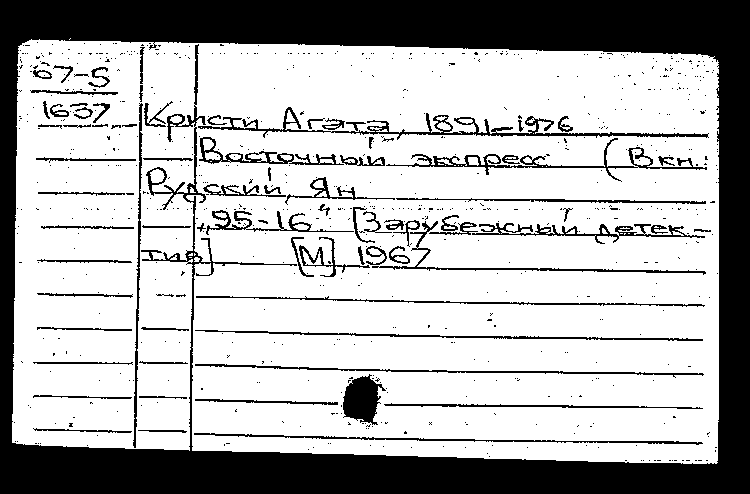 67-5
1637
Кристи, Агата, 1891-1976
Восточный экспресс (В кн.:
Рудский, Ян
„95-16" [Зарубежный детек-
тив] [М.], 1967